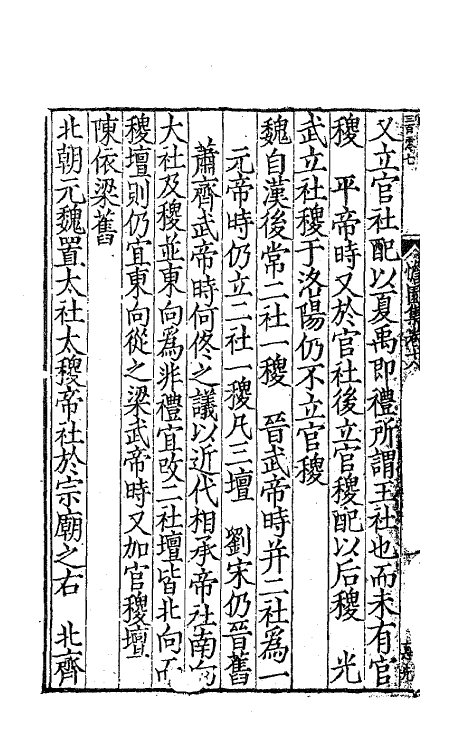 又立官社配以夏禹即禮所謂王社也而未有官
稷　平帝時又於官社後立官稷配以后稷　光
武立社稷于洛陽仍不立官稷
魏自漢後常二社一稷　晉武帝時并二社為一
元帝時仍立二社一稷凡三壇　劉宋仍晉舊
蕭齊武帝時何佟之議以近代相承帝社南向
大社及稷並東向為非禮宜改二社壇皆北向而
稷壇則仍宜東向從之梁武帝時又加官稷壇
陳依梁舊
北朝元魏置太社太稷帝社於宗廟之右　北齊